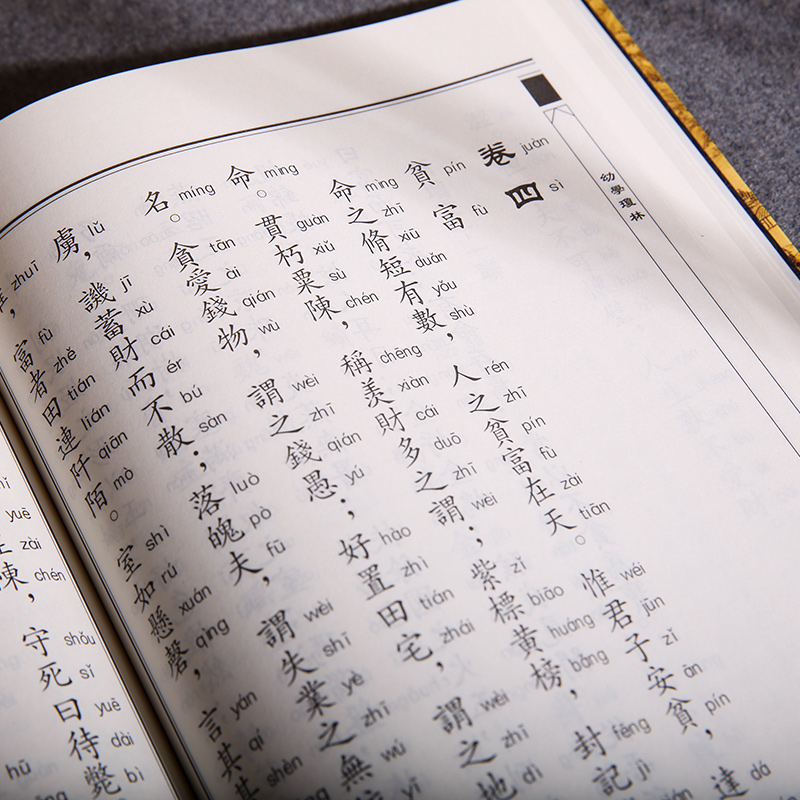 幼學瓊林
卷四
juàn sì
貧富
pín fù
命之脩短有數;人之貧富在天。惟君子安貧,達
mìng zhī xiū duǎn yǒu shù rén zhī pín fù zài tiān wéi jūn zǐ ān pín dá
命。貫朽粟陳,稱羨財多之謂;紫標黃榜,封記
mìng guàn xiǔ sù chén chēng xiàn cái duō zhī wèi zǐ biāo huáng bǎng fēng jì
名。貪愛錢物,謂之錢愚;好置田宅,謂之地
míng tān ài qián wù wèi zhī qián yú hào zhì tián zhái wèi zhī dì
虜,譏蓄財而不散;落魄夫,謂失業之無
lǔ jī xù cái ér bú sàn luò pò fū wèi shī yè zhī wú yī
富者田連阡陌。室如懸磬,言其甚
zhuī fù zhě tián lián qiān mò shì rú xuán qìng yán qí shèn
陳,守死曰待斃
yuē zài chén shǒu sǐ yuē dài bì
hū